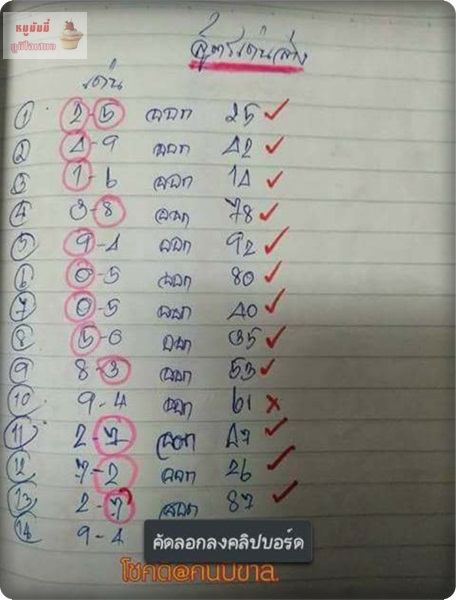 หมูมันนี่
ภูมิใจเสนอ
สูตรเด่นล่าง
เด่น
① 2-5 ออก 25 ✓
② 4-9 ออก 42 ✓
③ 1-6 ออก 14 ✓
④ 3-8 ออก 78 ✓
⑤ 9-4 ออก 92 ✓
⑥ 0-5 ออก 80 ✓
⑦ 0-5 ออก 40 ✓
⑧ 5-0 ออก 35 ✓
⑨ 8-3 ออก 53 ✓
⑩ 9-4 ออก 61 ✗
⑪ 2-7 ออก 47 ✓
⑫ 7-2 ออก 26 ✓
⑬ 2-7 ออก 87 ✓
⑭ 9-4
คัดลอกลงคลิปบอร์ด
โชคดี@คนบ้าบาล.